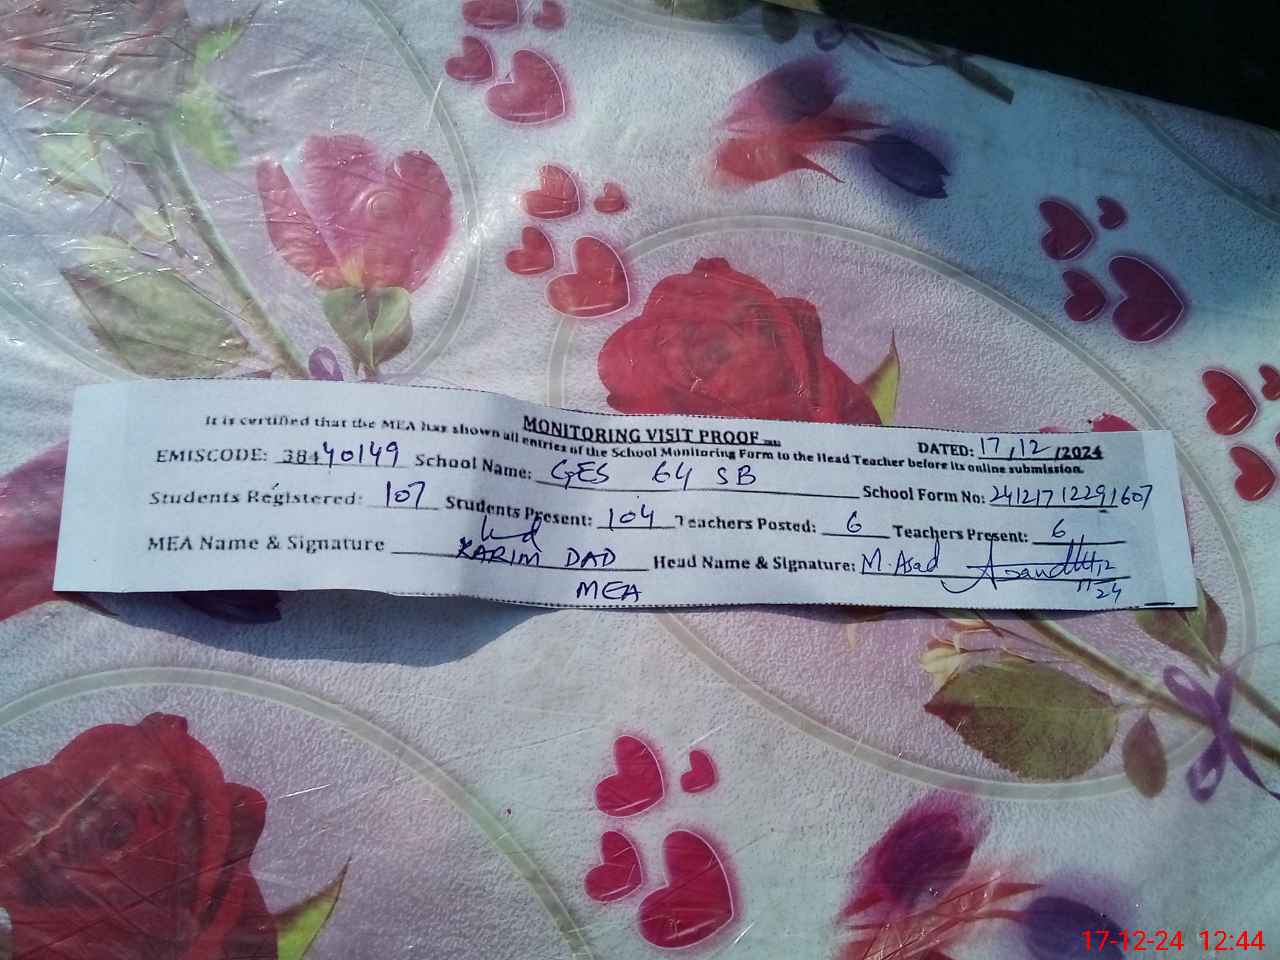 MONITORING VISIT PROOF
DATED: 17/12/2024
It is certified that the MEA has shown all entries of the School Monitoring Form to the Head Teacher before its online submission.
EMISCODE: 38440149 School Name: GES 64 SB School Form No: 24121712291607
Students Registered: 107 Students Present: 104 Teachers Posted: 6 Teachers Present: 6
MEA Name & Signature KARIM DAD Head Name & Signature: M. Asad
MEA
17-12-24 12:44